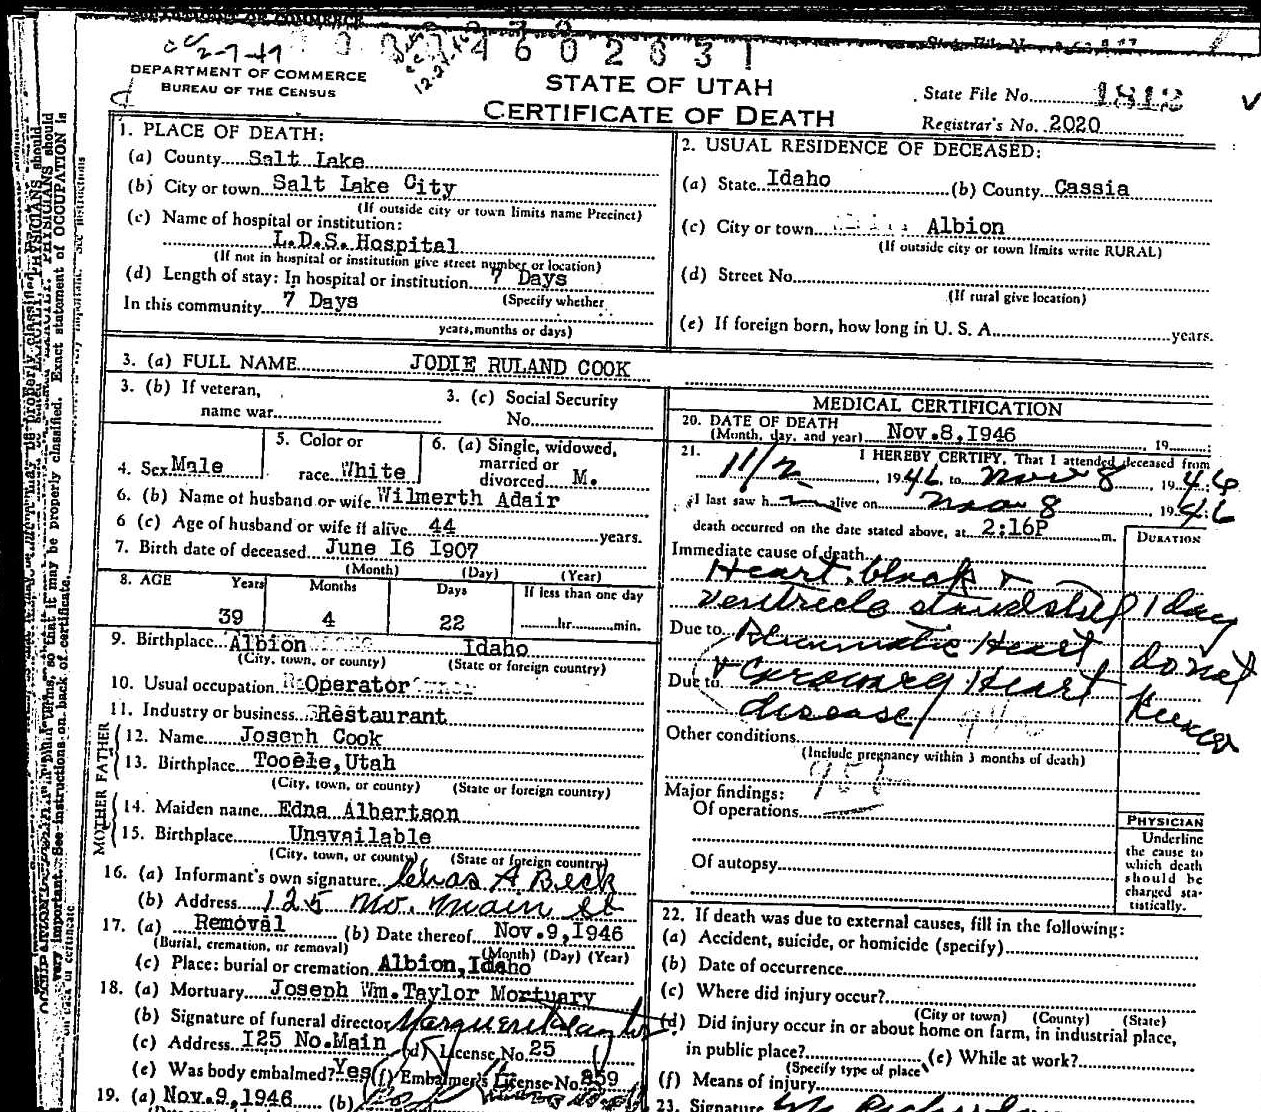 DEPARTMENT OF COMMERCE
BUREAU OF THE CENSUS
STATE OF UTAH
CERTIFICATE OF DEATH
State File No. 1818
Registrar's No. 2020
1. PLACE OF DEATH:
(a) County Salt Lake
(b) City or town Salt Lake City
(If outside city or town limits name Precinct)
(c) Name of hospital or institution:
L.D.S. Hospital
(If not in hospital or institution give street number or location)
(d) Length of stay: In hospital or institution 7 Days
(Specify whether
In this community 7 Days
years, months or days)
2. USUAL RESIDENCE OF DECEASED:
(a) State Idaho (b) County Cassia
(c) City or town Albion
(If outside city or town limits write RURAL)
(d) Street No.
(If rural give location)
(e) If foreign born, how long in U. S. A. years.
3. (a) FULL NAME JODIE RULAND COOK
3. (b) If veteran,
name war
3. (c) Social Security
No.
4. Sex Male
5. Color or
race White
6. (a) Single, widowed,
married or
divorced M.
6. (b) Name of husband or wife Wilmerth Adair
6 (c) Age of husband or wife if alive 44 years.
7. Birth date of deceased June I6 I907
(Month) (Day) (Year)
8. AGE Years Months Days If less than one day
39 4 22 hr. min.
9. Birthplace Albion Idaho
(City, town, or county) (State or foreign country)
10. Usual occupation Operator
11. Industry or business Restaurant
FATHER
12. Name Joseph Cook
13. Birthplace Tooele, Utah
(City, town, or county) (State or foreign country)
MOTHER
14. Maiden name Edna Albertson
15. Birthplace Unavailable
(City, town, or county) (State or foreign country)
16. (a) Informant's own signature Chas A Beck
(b) Address 125 No. Main St
17. (a) Removal (b) Date thereof Nov.9,I946
(Burial, cremation, or removal) (Month) (Day) (Year)
(c) Place: burial or cremation Albion, Idaho
18. (a) Mortuary Joseph Wm.Taylor Mortuary
(b) Signature of funeral director
(c) Address I25 No.Main (d) License No. 25
(e) Was body embalmed? Yes (f) Embalmer's License No. 859
19. (a) Nov.9,1946 (b)
MEDICAL CERTIFICATION
20. DATE OF DEATH
(Month, day, and year) Nov.8,I946 19
21. I HEREBY CERTIFY, That I attended deceased from
11/2 1946, to Nov 8 1946
I last saw h alive on Nov 8 1946
death occurred on the date stated above, at 2:16P m.
DURATION
Immediate cause of death
Heart block +
ventricle standstill 1 day
Due to Rheumatic Heart do not
Due to + Coronary Heart know
disease
Other conditions
(Include pregnancy within 3 months of death)
Major findings:
Of operations
Of autopsy
PHYSICIAN
Underline
the cause to
which death
should be
charged sta-
tistically.
22. If death was due to external causes, fill in the following:
(a) Accident, suicide, or homicide (specify)
(b) Date of occurrence
(c) Where did injury occur?
(City or town) (County) (State)
(d) Did injury occur in or about home on farm, in industrial place,
in public place? (e) While at work?
(Specify type of place)
(f) Means of injury
23. Signature